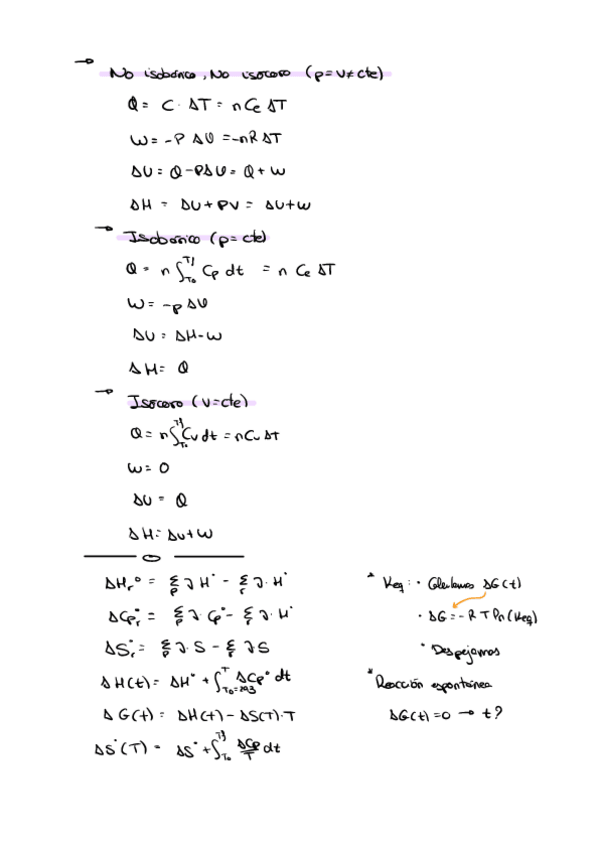 → No isobárico, No isocoro (p=v≠cte)
Q = C · ΔT = n Ce ΔT
W = -P ΔV = -nRΔT
ΔU = Q - PΔV = Q + W
ΔH = ΔU + PV = ΔU + W
→ Isobárico (p=cte)
Q = n ∫_{T0}^{Tf} Cp dt = n Ce ΔT
W = -p ΔV
ΔU = ΔH - W
ΔH = Q
→ Isocoro (v=cte)
Q = n ∫_{T0}^{Tf} Cv dt = n Cv ΔT
W = 0
ΔU = Q
ΔH = ΔU + W
ΔHr° = Σp ν H° - Σr ν · H°
ΔCpr° = Σp ν · Cp° - Σr ν · H°
ΔSr° = Σp ν · S - Σr ν S
ΔH(t) = ΔH° + ∫_{T0=293}^{T} ΔCp° dt
ΔG(t) = ΔH(t) - ΔS(T) · T
ΔS°(T) = ΔS° + ∫_{T0}^{Tf} ΔCp/T dt
* Keq: · Calculamos ΔG(t)
· ΔG = -R T ln(Keq)
· Despejamos
* Reacción espontánea
ΔG(t) = 0 → t?